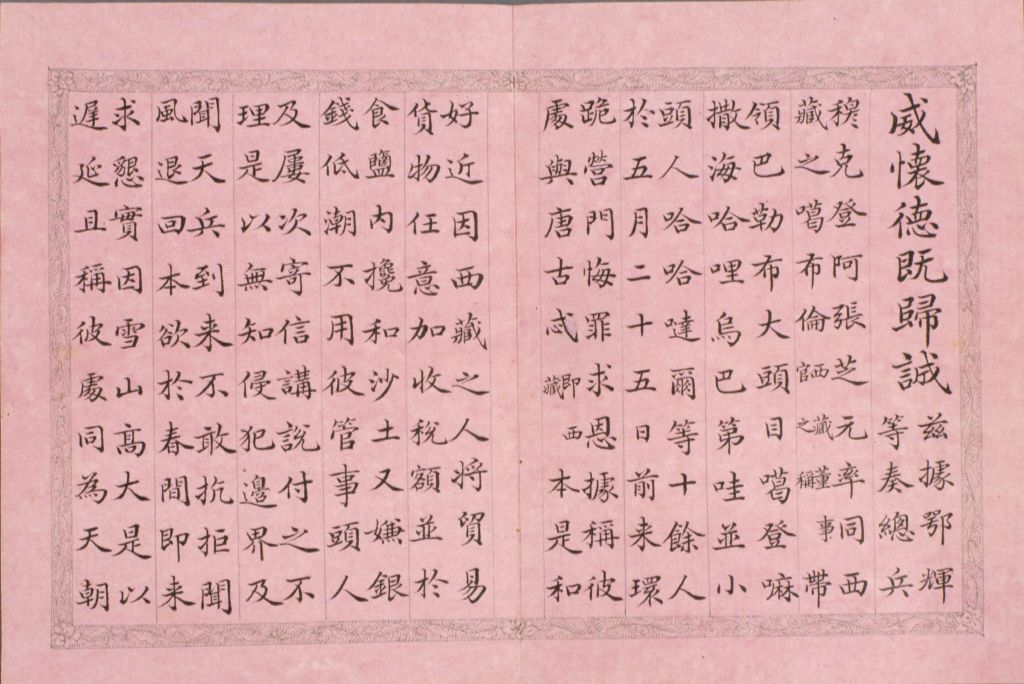 威懷德既歸誠
兹據鄂輝
等奏總兵
穆克登阿張芝元率同西
藏之噶布倫西藏董事官之稱帶
領巴勒布大頭目噶登嘛
撒海哈哩烏巴第哇並小
頭人哈哈噠爾等十餘人
於五月二十五日前来環
跪營門悔罪求恩據稱彼
處與唐古忒即西藏本是和
好近因西藏之人將貿易
貨物任意加收稅額並於
食鹽内攙和沙土又嫌銀
錢低潮不用彼管事頭人
及屢次寄信講說付之不
理是以無知侵犯邊界及
聞天兵到来不敢抗拒聞
風退回本欲於春間即来
求懇實因雪山高大是以
遲延且稱彼處同為天朝